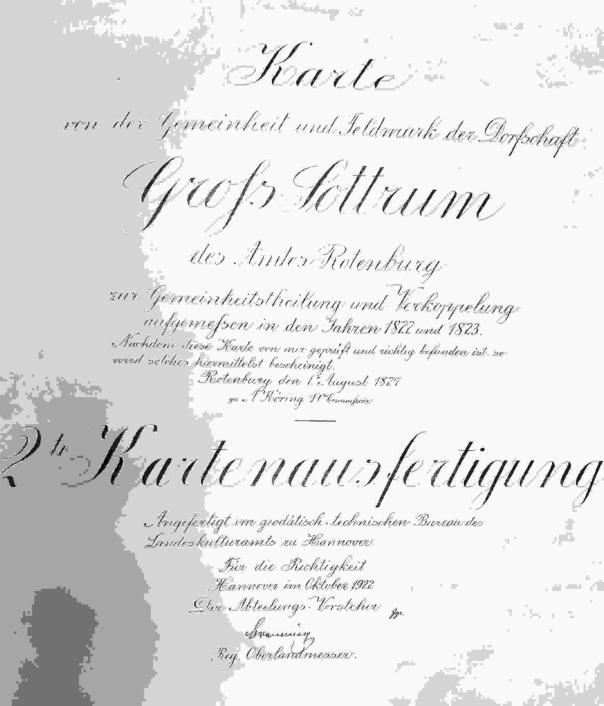 Karte
von der Gemeinheit und Feldmark der Dorfschaft
Groſs Sottrum
des Amtes Rotenburg
zur Gemeinheitstheilung und Verkoppelung
aufgemeſsen in den Jahren 1822 und 1823.
Nachdem diese Karte von mir geprüft und richtig befunden ist. so
wird solches hiermittelst bescheinigt.
Rotenburg den 1t. August 1827
gez. A Köring
2te Kartenausfertigung
Angefertigt im geodätisch-technischen Bureau des
Landeskulturamts zu Hannover
Für die Richtigkeit
Hannover im Oktober 1922
Der Abteilungs-Vorsteher
Reg. Oberlandmesser.